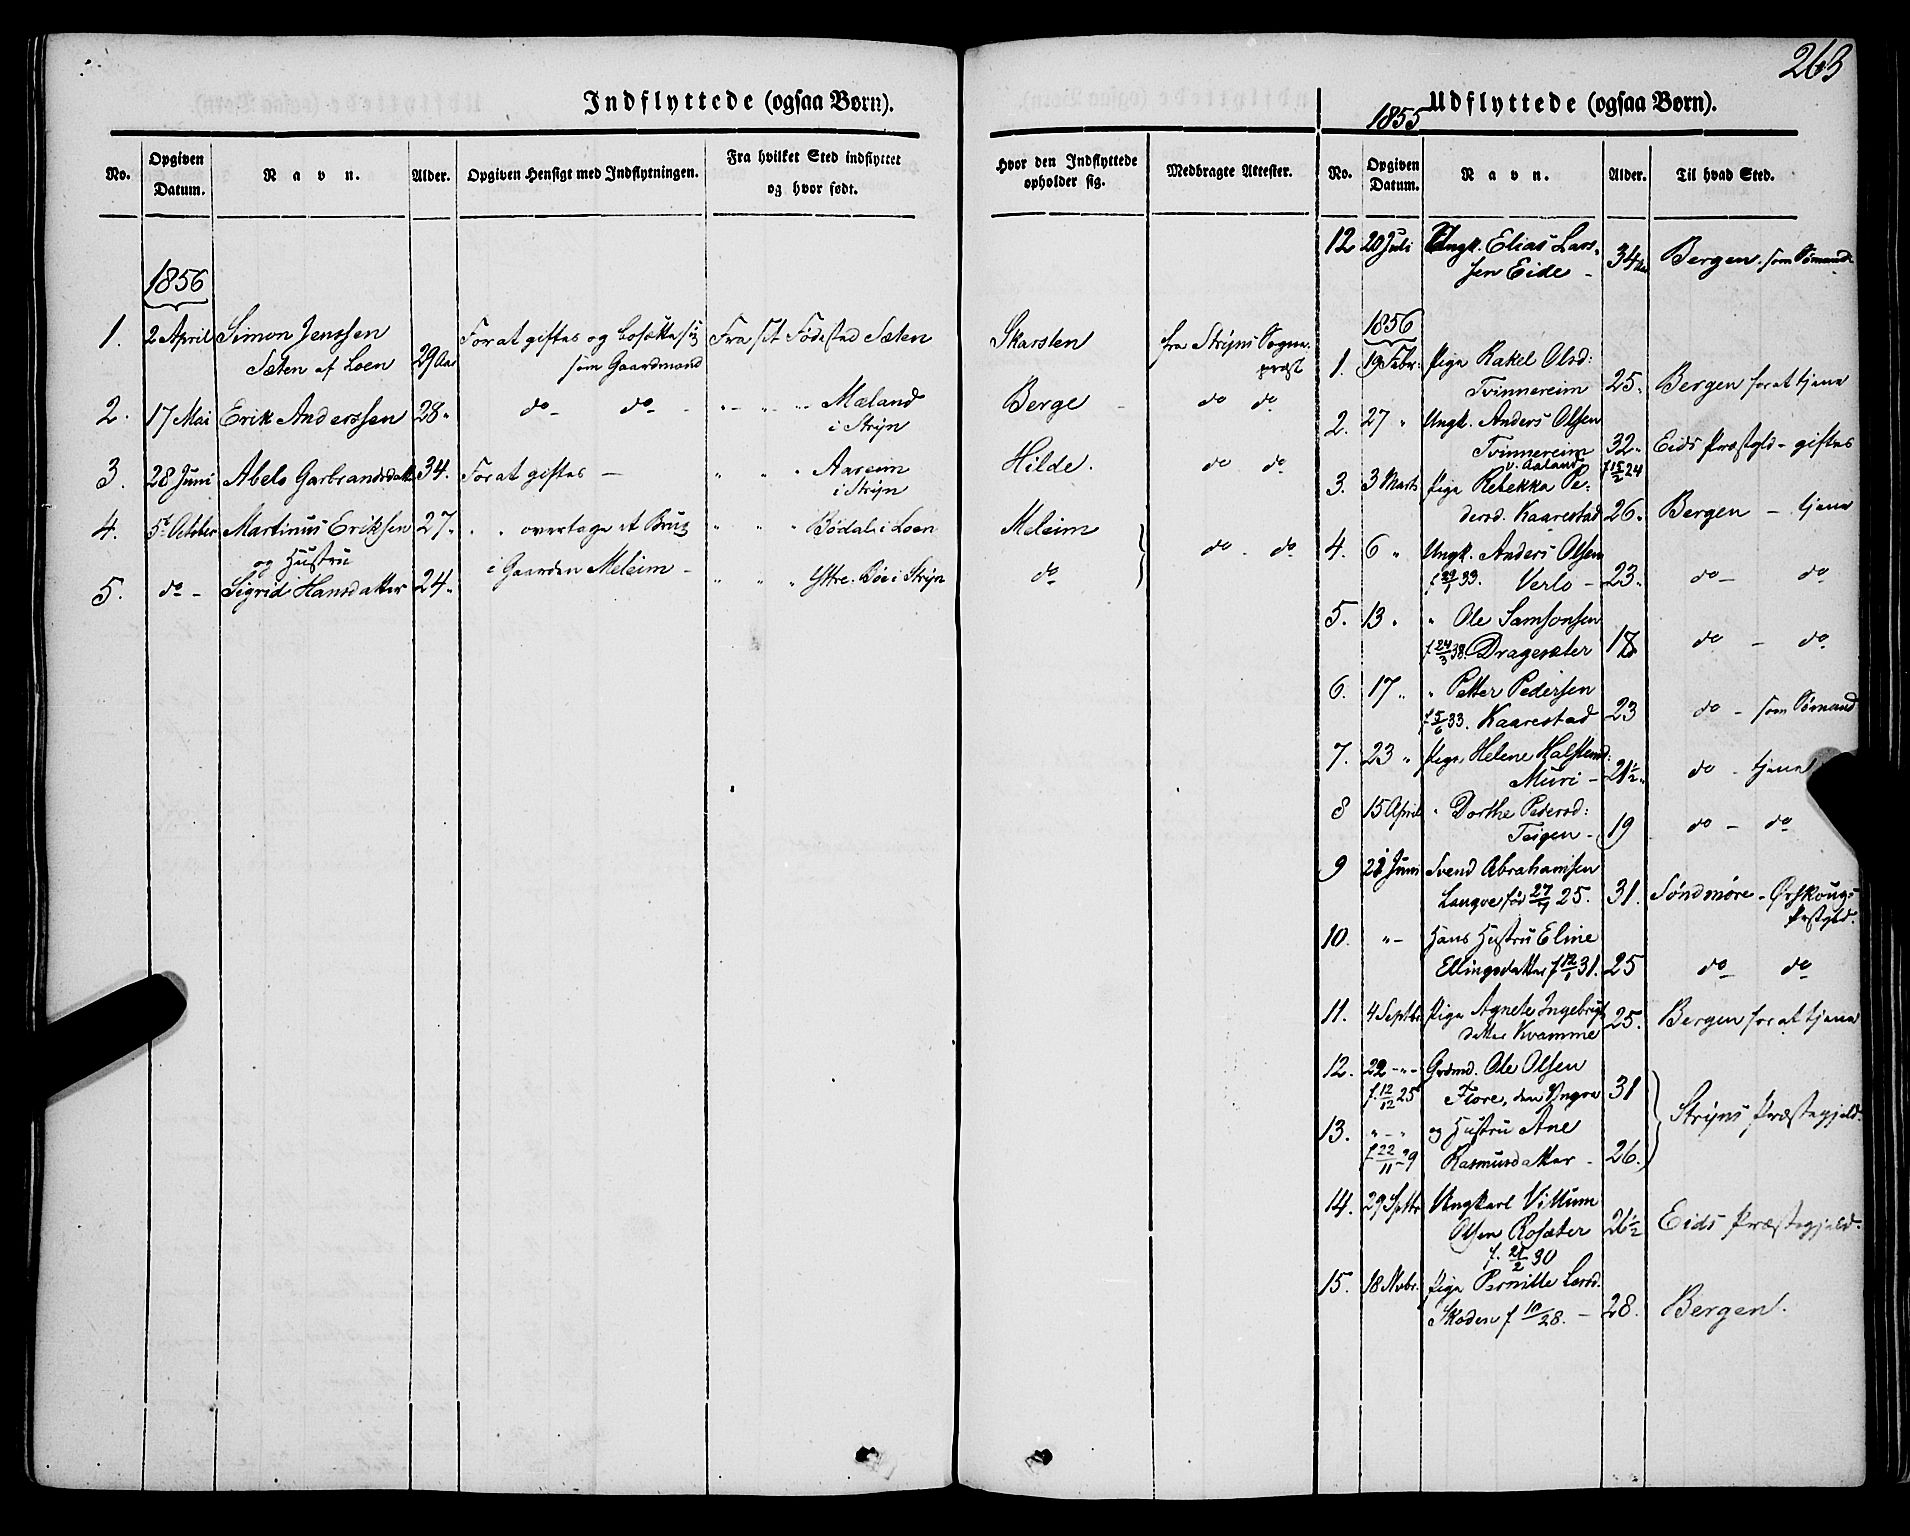 263
Indflyttede (ogsaa Børn).
No.
Opgiven Datum.
Navn.
Alder.
Opgiven Hensigt med Indflytningen.
Fra hvilket Sted indflyttet og hvor født.
Hvor den Indflyttede opholder sig.
Medbragte Attester.
1856
1. 2 April Simon Jenssen For at giftes og bosætte sig Fra sit Fødested Sæten Skarsten fra Stryns Sogne-
Sæten af Loen 29 Aar som Gaardmand præst
2. 17 Mai Erik Anderssen 28 do do Mæland Berge do do
i Stryn
3. 28 Juni Abelo Garbrandsdatter 34. For at giftes Aareim Hilde. do do
i Stryn
4. 5te October Martinus Eriksen 27 overtage et Brug Bødal i Loen Meleim do do
og Hustru i Gaarden Meleim
5. do Sigrid Hansdatter 24 Ytre Bøe i Stryn do
Udflyttede (ogsaa Børn).
1855
No.
Opgiven Datum.
Navn.
Alder.
Til hvad Sted.
12 20 Juli Ungk. Elias Lars-
sen Eide 34 Aar Bergen som Sømand
1856
1. 19 Febr. Pige Rakel Olsd:
Tvinnereim 25 Bergen for at tjene
2. 27 " Ungk. Anders Olsen
Tvinnereim 32 Eids Præstgld - giftes
v. Aaland f 15/2 24
3. 3 Marts Pige Rebekka Pe-
dersd. Kaarestad 26 Bergen - tjene
4. 6 " Ungk. Anders Olsen
33. Verlo 23 do do
5. 13 " " Ole Samsonsen
f 24/3 38. Dragesæter 18 do do
6. 17 " " Petter Pedersen
f 5/6 33. Kaarestad 23 do - som Sømand
7. 23 " Pige Helene Halstensd:
Muri 21 1/2 do - tjene
8 15 April " Dorthe Pedersd:
Teigen 19 do - do
9 Juni Svend Abrahamsen
Langve fød 25. 31. Søndmøre - Ørskougs
Præstgld.
10. " Hans Hustru Eline
Ellingsdatter f 12/1 31. 25 do do
11. 4 Septbr Pige Agnete Ingebrigt-
datter Kvamme 25. Bergen for at tjene
12. 22 " Grdmd. Ole Olsen
f. 12/12 25 Flore, den Yngre 31 Stryns Præstegjeld.
13. " og Hustru Ane
f 22/11 29 Rasmusdatter 26.
14. 29 Septbr Ungkarl Villum
Olsen Rosæter 26 1/2 Eids Præstegjeld.
30
15. 18 Novbr. Pige Pernille Larsd.
Skoden f 10/28. 28. Bergen.